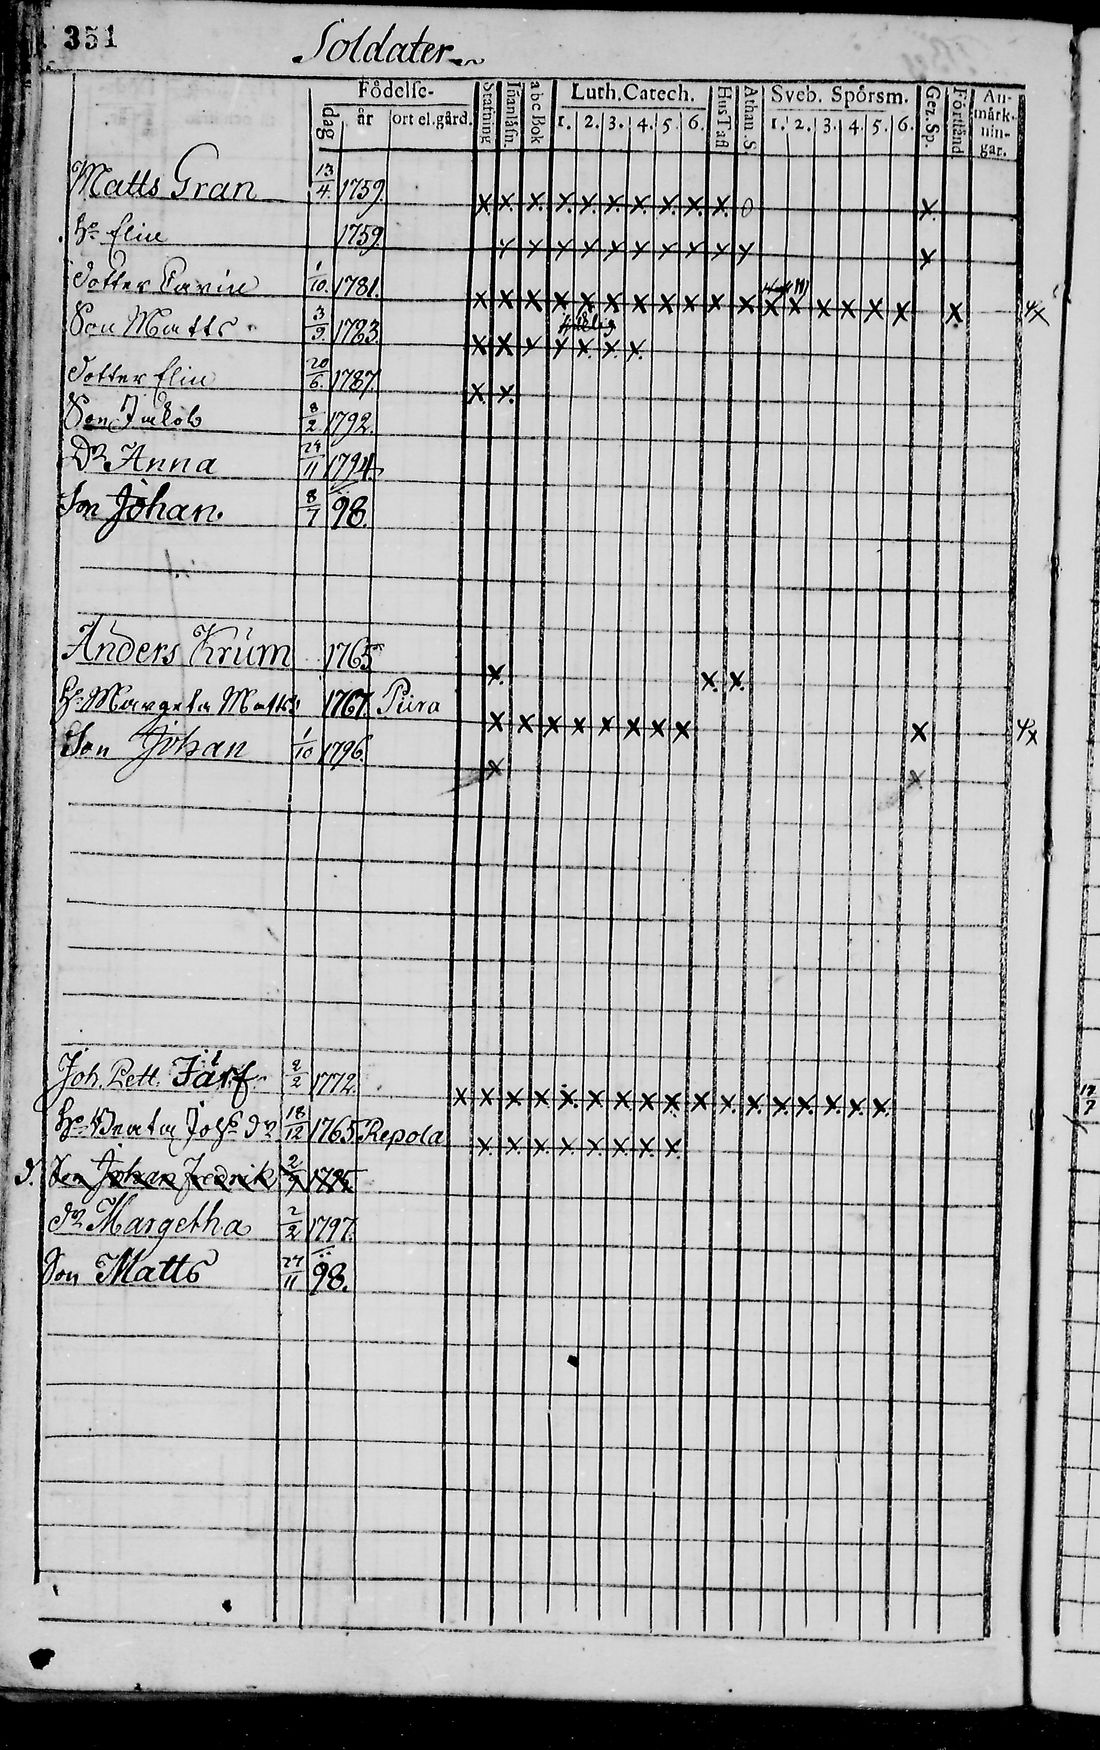 351
Soldater
Födelse-
dag
år
ort el.gård.
Stafning
Inanläsn.
abc Bok
Luth. Catech.
1. 2. 3. 4. 5. 6.
Hus Tafl
Athan. S.
Sveb. Spörsm.
1. 2. 3. 4. 5. 6.
Gez. Sp.
Förstånd
An-
märk-
nin-
gar.
Matts Gran 13/4. 1759. x x. x. x. x. x. x. x. x. x. 0 x.
Hu Elin 1759 x x x x x x x x x x x
Dotter Carin 1/10. 1781. x x x x x x x x x x x x x x x x x x
Son Matts 3/9. 1783. x x x x x. x x.
Dotter Elin 20/6. 1787 x x.
Son Jakob 8/2 1792.
Dr Anna 24/11 1794.
Son Johan. 8/7 98.
Anders Krum 1765 x. x. x.
Hu Margeta Matts 1767. Piira x x x x x x x x x
Son Johan 1/10 1796. x x
Joh. Pett. Järf 2/2 1772. x x x x x. x x x x x x. x x. x. x. x. x.
Hu Beata Johs dr 18/12 1765 Repola x. x. x. x. x. x. x. x.
d. Son Johan Fredrik 2/9 1785.
dr Margetha 2/2 1797.
Son Matts 27/11 98.
17/7